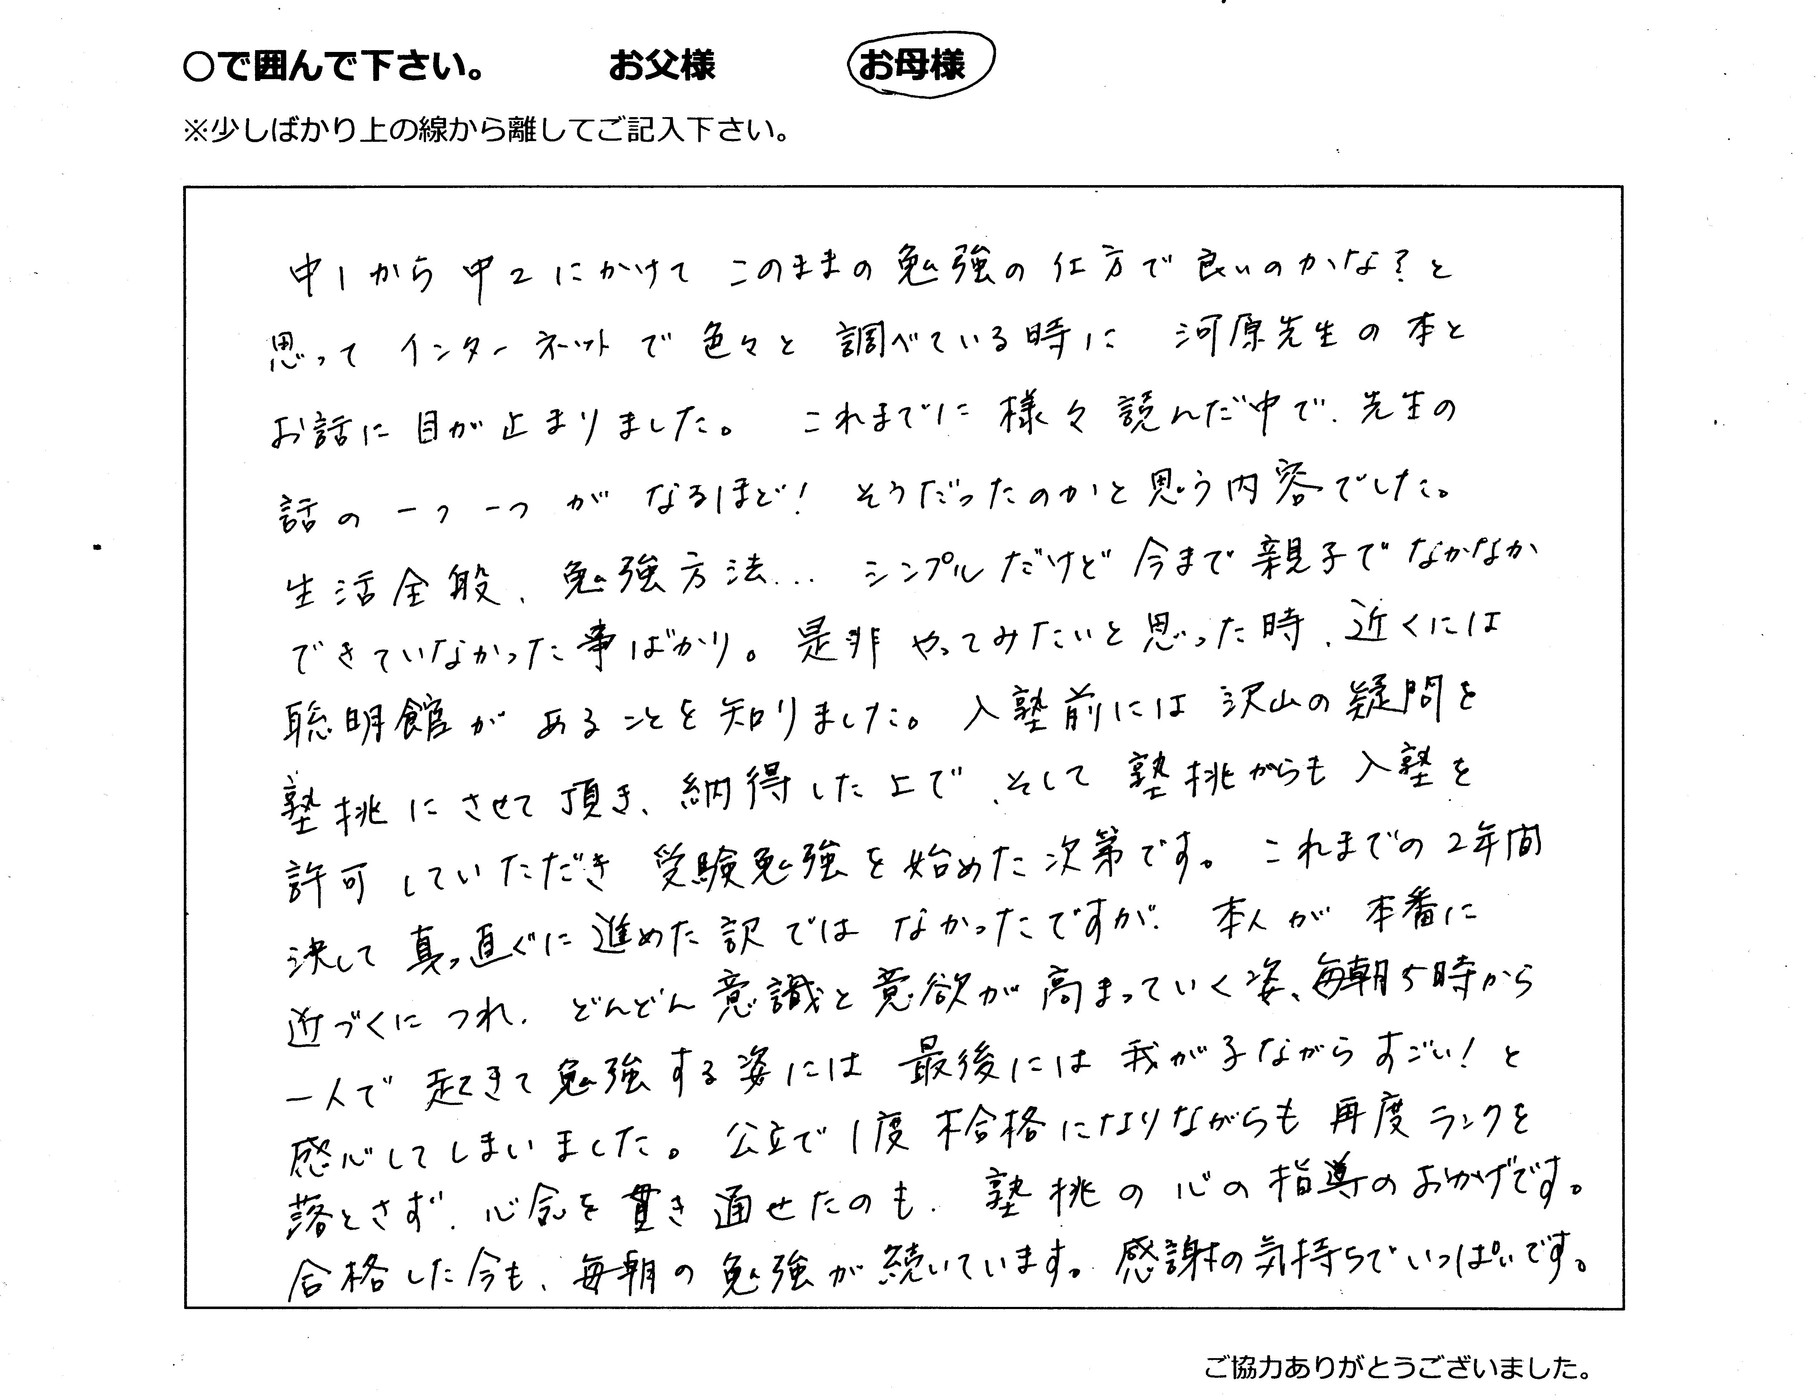 ○で囲んで下さい。　お父様　お母様
※少しばかり上の線から離してご記入下さい。
中1から中2にかけて このままの勉強の仕方で良いのかな?と
思って インターネットで色々と調べている時に 河原先生の本と
お話に目が止まりました。 これまでに様々読んだ中で、先生の
話の一つ一つが なるほど! そうだったのかと思う内容でした。
生活全般、勉強方法... シンプルだけど今まで親子でなかなか
できていなかった事ばかり。是非やってみたいと思った時、近くには
聡明館があることを知りました。入塾前には沢山の疑問を
塾挑にさせて頂き、納得した上で、そして塾挑からも入塾を
許可していただき 受験勉強を始めた次第です。 これまでの2年間
決して真っ直ぐに進めた訳ではなかったですが、本人が本番に
近づくにつれ、どんどん意識と意欲が高まっていく姿、毎朝5時から
一人で起きて勉強する姿には最後には我が子ながらすごい!と
感心してしまいました。公立で1度不合格になりながらも再度ランクを
落とさず、心念を貫き通せたのも、塾挑の心の指導のおかげです。
合格した今も、毎朝の勉強が続いています。感謝の気持ちでいっぱいです。
ご協力ありがとうございました。